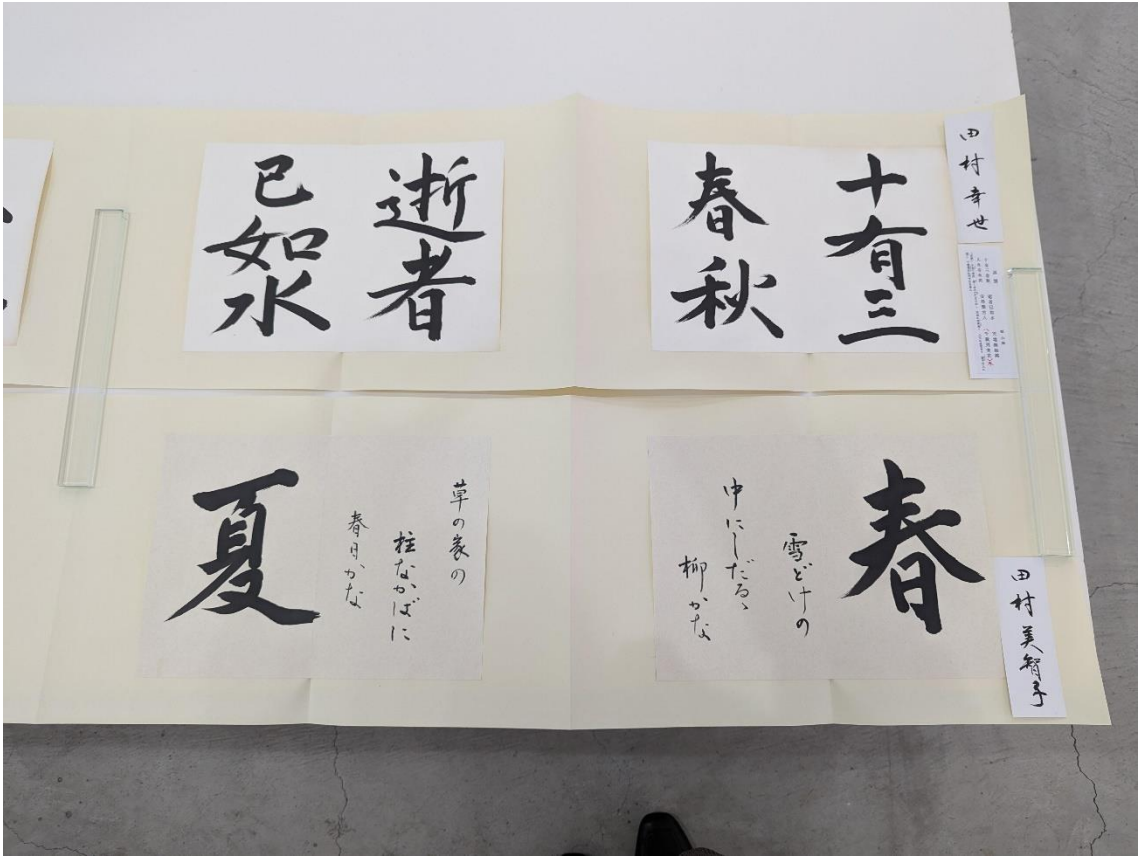 田村幸世
十有三
春秋
逝者
已如水
田村美智子
春
雪どけの
中にしだるゝ
柳かな
草の家の
柱なかばに
春日かな
夏